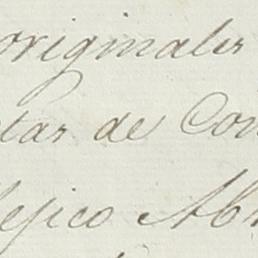 originales
tas de Con
Mejico Abr